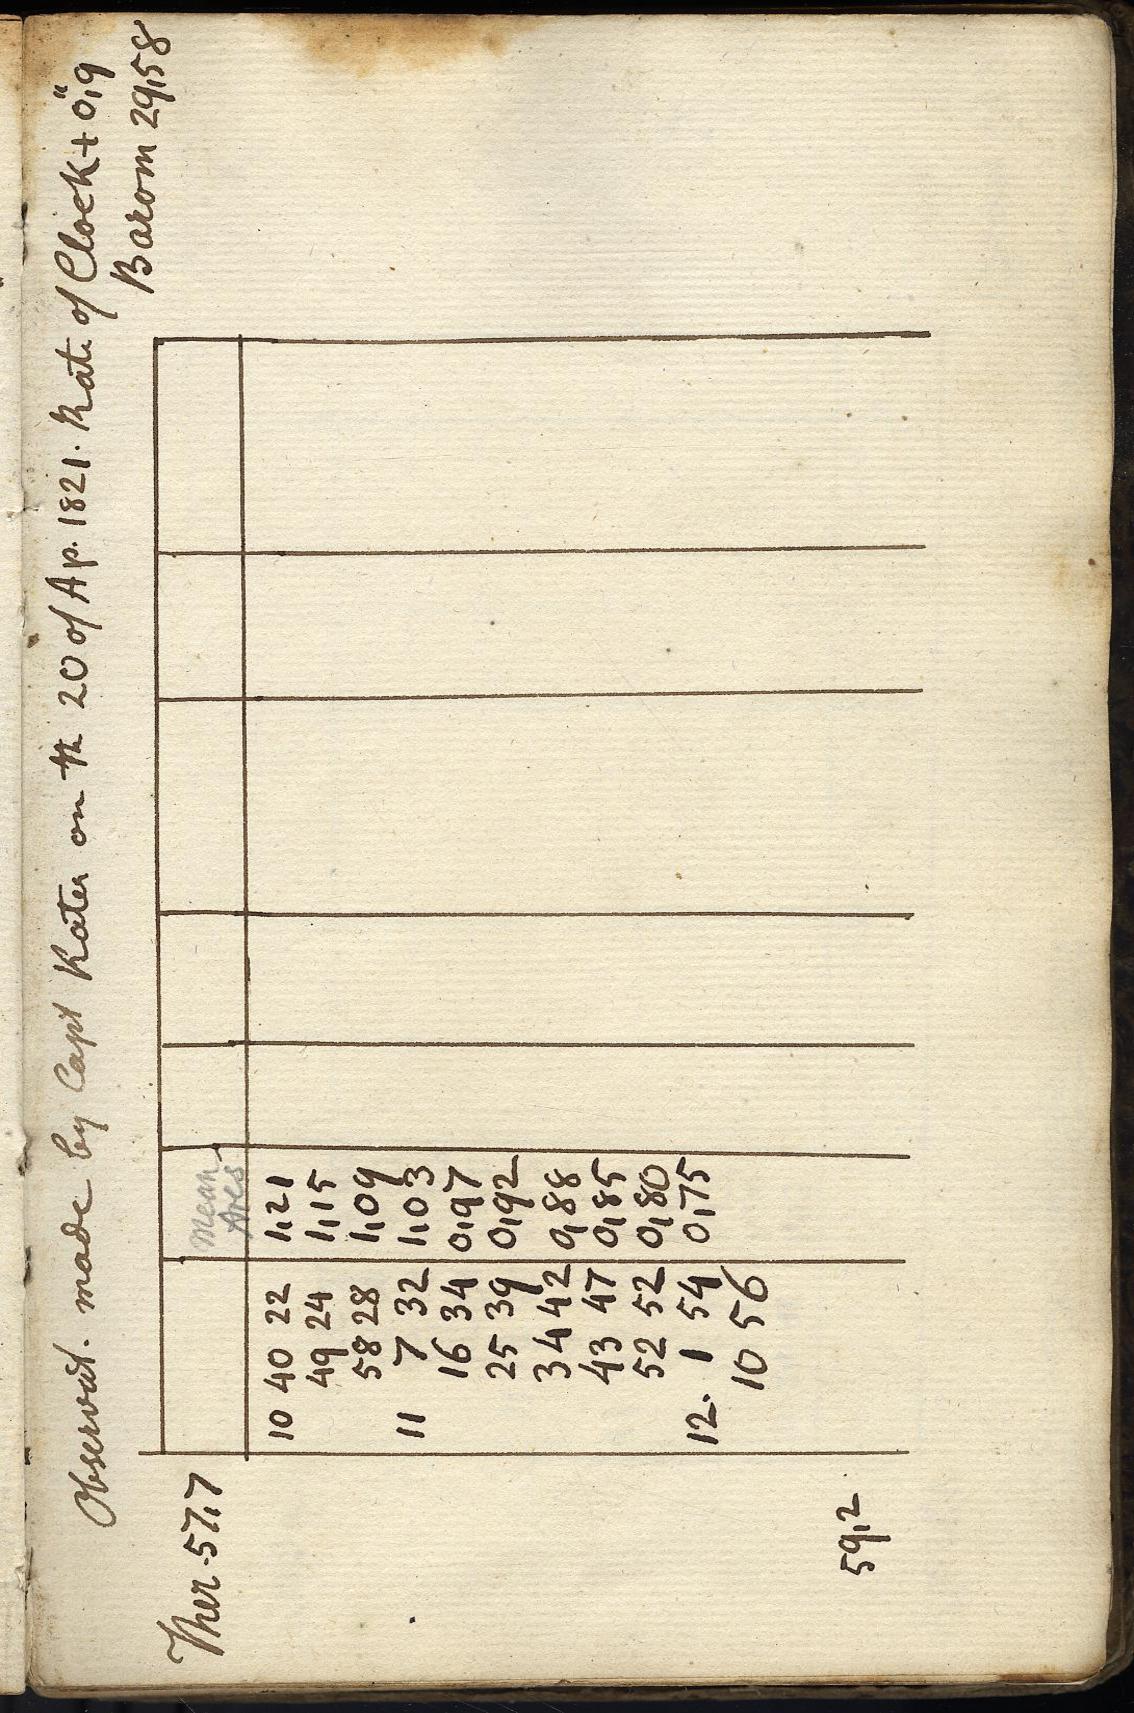 Observat. made by Capt Kater on the 20 of Ap. 1821. Rate of Clock + 0",9
Barom 29,58
Ther. 57,7
Mean
Arcs
10 40 22 1,21
49 24 1,15
58 28 1,09
11 7 32 1,03
16 34 0,97
25 39 0,92
34 42 0,88
43 47 0,85
52 52 0,80
12. 1 54 0,75
10 56
59,2